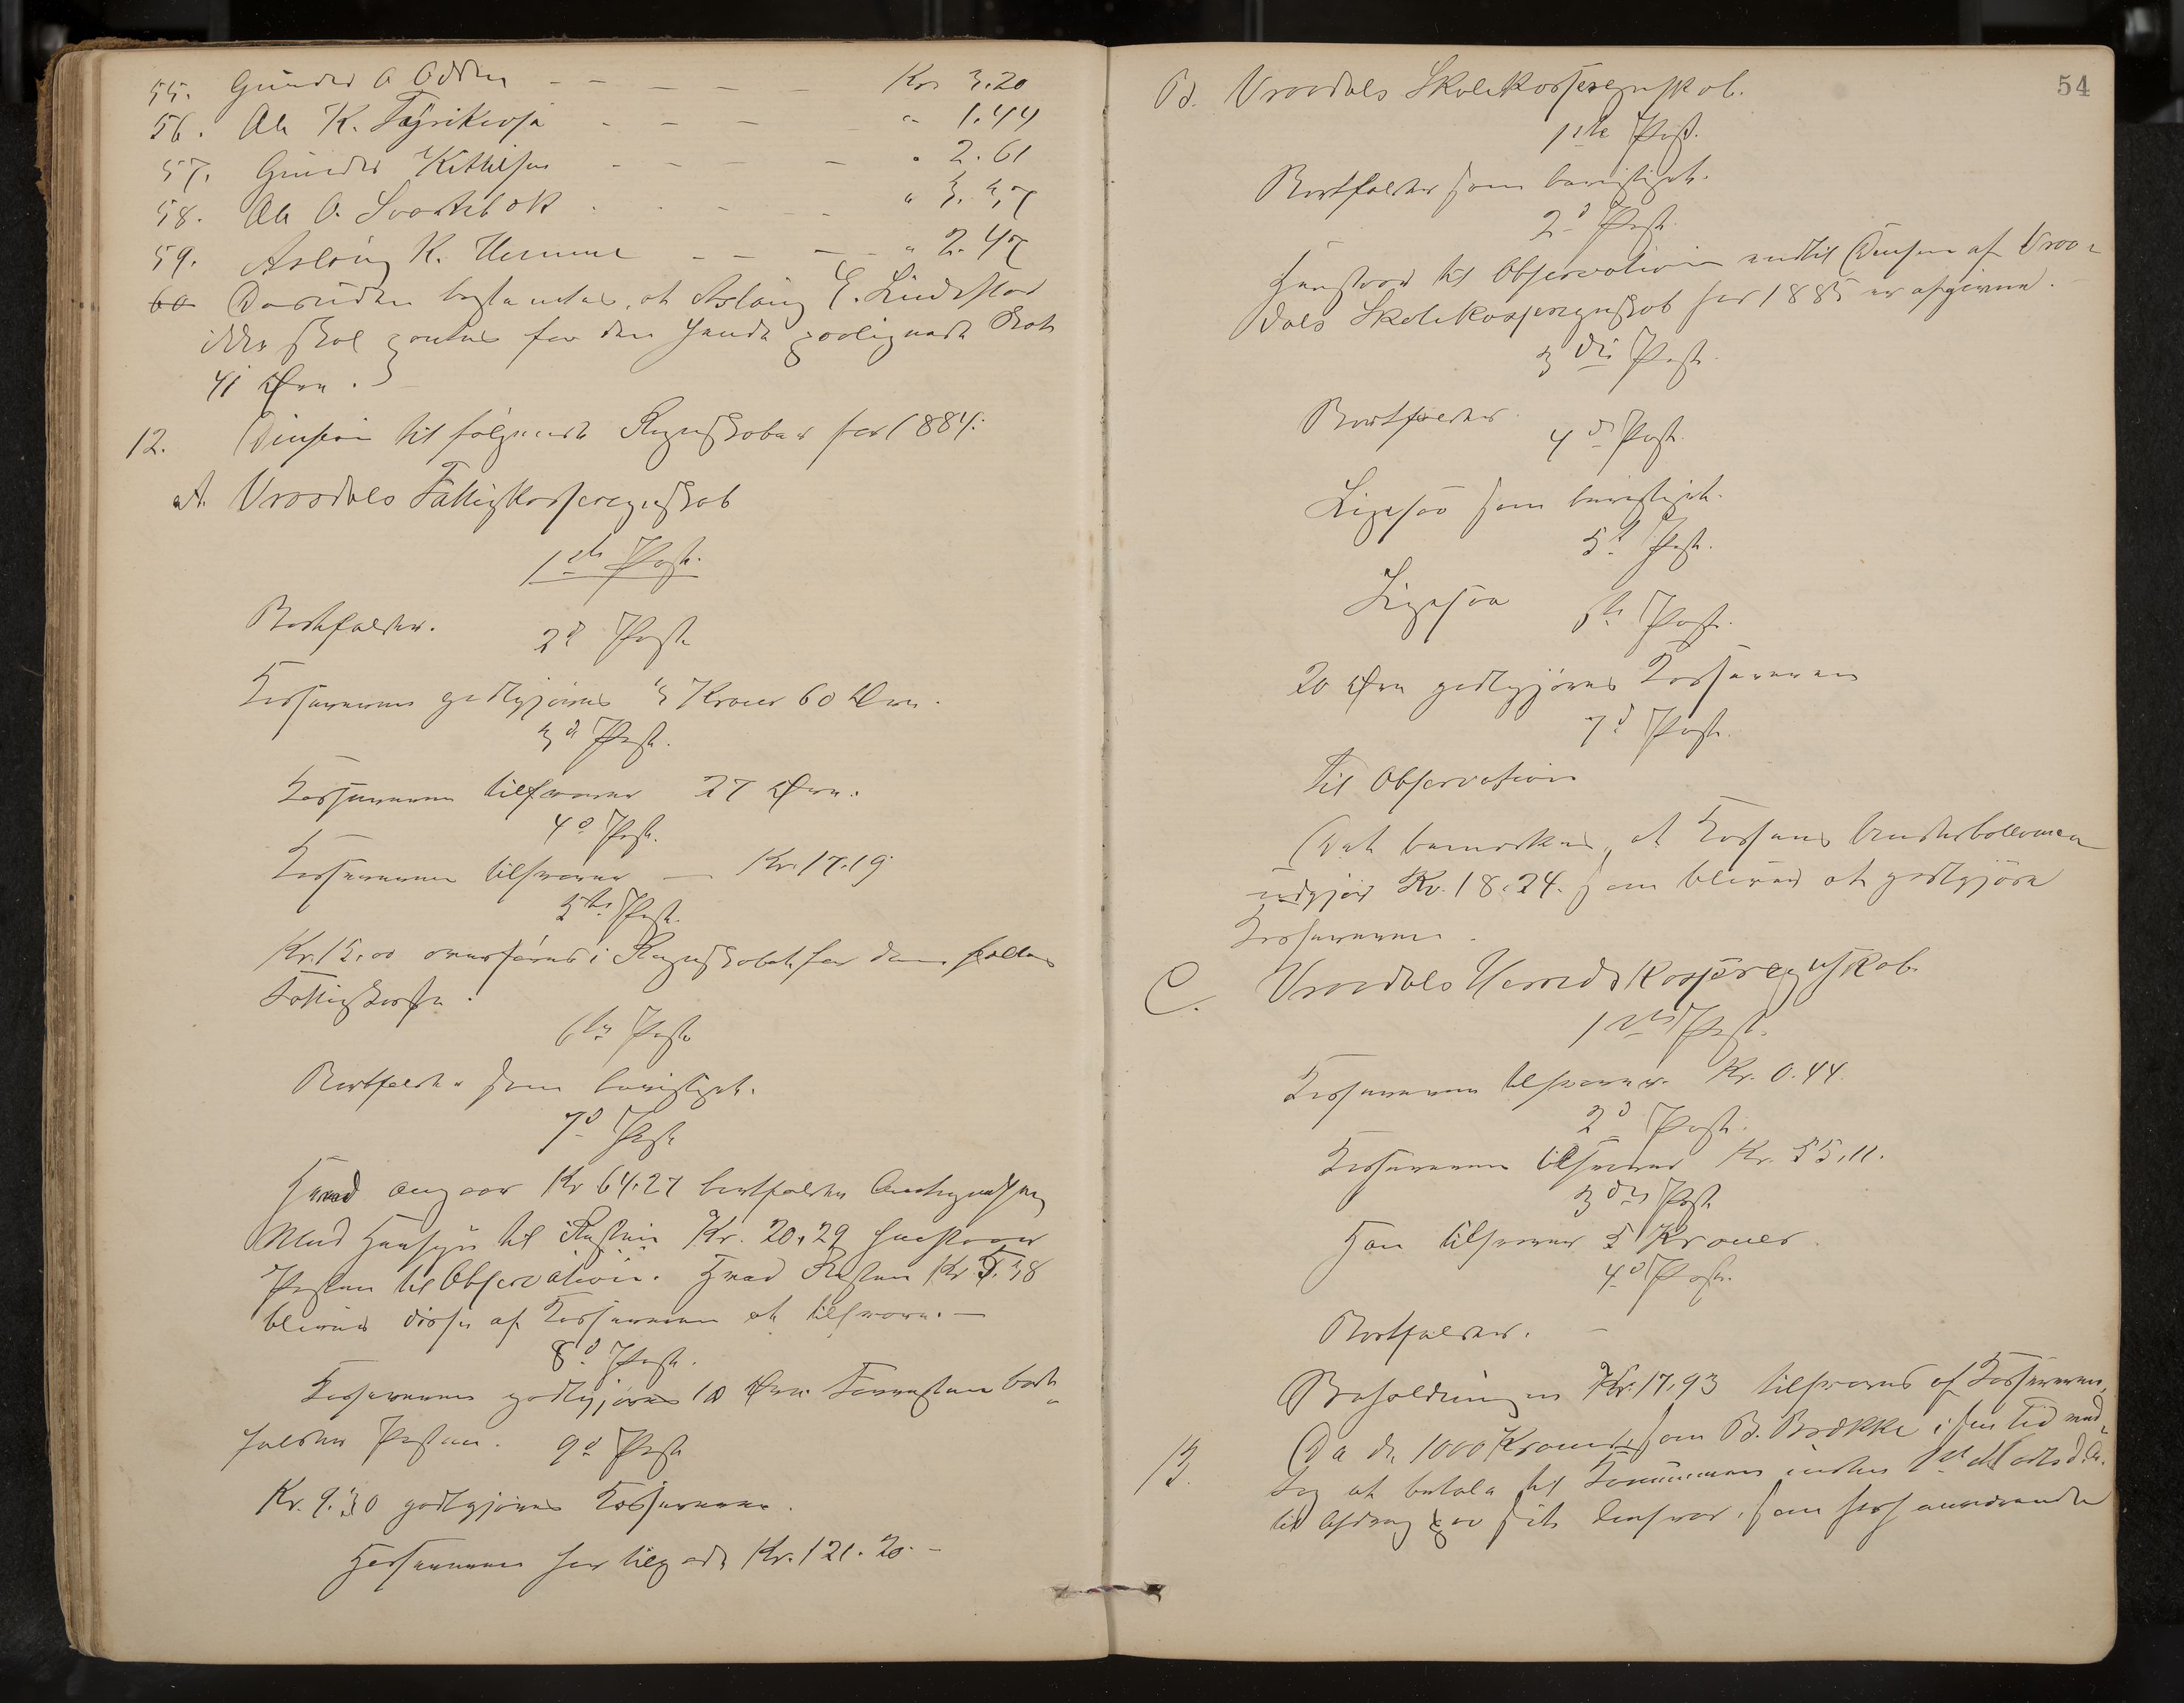 55. Gunder O Odden — — — — — Kr. 3.20
56. Ole K. Tyrikevja - — — — " 1.44
57. Gunder Kittilsen - — — — " 2.61
58. Ole O. Svartebøk . - - — — " 3.57
59. Aslaug K. Hemma — — — — " 2.47
60 Desuden bestemtes, at Aslaug E. Lindestad
ikke skal pantes for den hende paalignede Skat
41 Øre.
12. Decision til følgende Regnskaber for 1884:
A. Vraadals Fattigkasseregnskab
1ste Post.
Bortfalder.
2d Post
Kassereren godtgjøres 3 Kroner 60 Øre.
3d Post.
Kassereren tilsvarer 27 Øre.
4d Post.
Kassereren tilsvarer — Kr. 17.19
5te Post.
Kr. 15.00 overføres i Regnskabet for den fælles
Fattigkasse.
6te Post
Bortfalder som bevistligt.
7d Post
Hvad angaar Kr 64.27 bortfalder Antegnelsen
Med Hensyn til Resten Kr. 20.29 henstaar
Posten til Observation. Hvad Resten Kr 5.38
bliver disse af Kassereren at tilsvare. —
8d Post.
Kassereren godtgjøres 10 Øre. Forresten bort-
falder Posten.
9d Post
Kr. 9.30 godtgjøres Kassereren.
Kassereren har tilgode Kr. 121.20. —
54
B. Vraadals Skolekasseregnskab.
1ste Post.
Bortfalder som bevistligt.
2d Post.
Henstaar til Observation indtil Decision af Vraa-
dals Skolekasseregnskab for 1885 er afgivne.
3die Post.
Bortfalder.
4d Post.
Ligesaa som bevistligt.
5t Post.
Ligesaa
6te Post.
20 Øre godtgjøres Kassereren
7d Post.
Til Observation
Det bemærkes, at Kassens Underballance
udgjør Kr. 18.24. som bliver at godtgjøre
Kassereren.
C. Vraadals Herredskasseregnskab.
1ste Post.
Kassereren tilsvarer. Kr. 0.44.
2d Post.
Kassereren tilsvarer Kr. 55.11.
3die Post
Han tilsvarer 5 Kroner.
4d Post.
Bortfalder. —
Beholdningen Kr. 17.93 tilsvares af Kassereren.
13. Da de 1000 Kroner, som B. Brække i sin Tid ved-
tog at betale til Kommunen inden 1ste Marts d.A.
til Afdrag paa sit Ansvar, som forhenværende